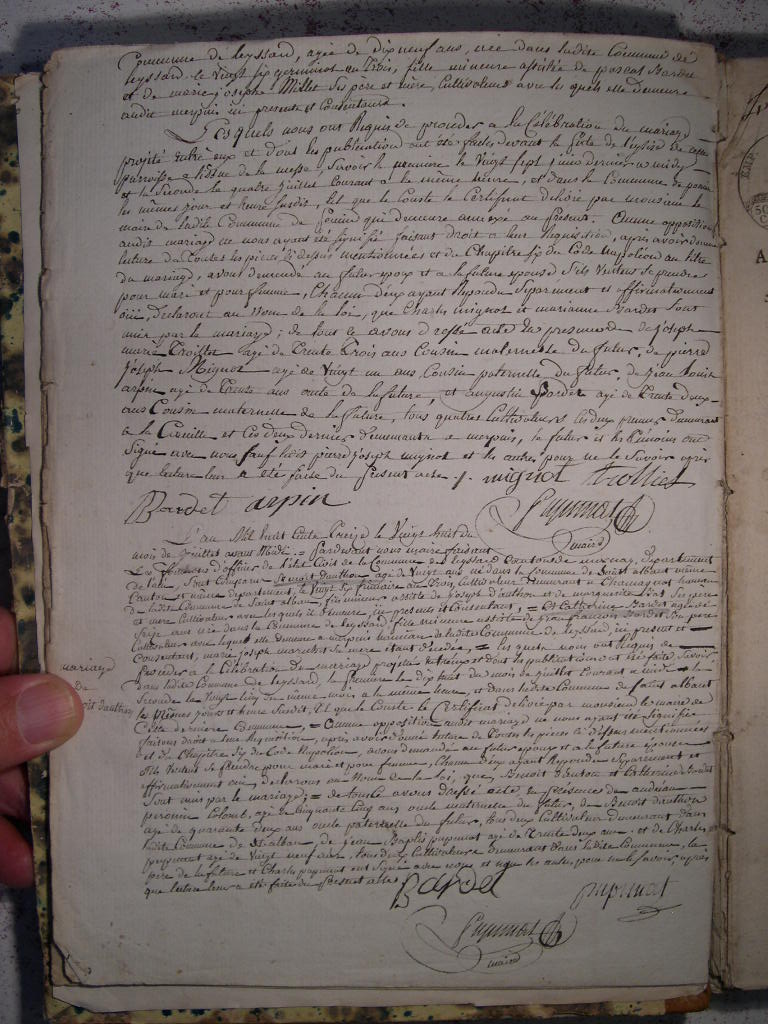 Commune de leyssard, agée de dix neuf ans, née dans ladite Commune de
leyssard le vingt six germinal an trois, fille mineure assistée de pascal Bardet
et de marie joseph Millet ses pere et mere, Cultivateurs avec les quels elle demeure
audit merpuis ici presents et Consentants.
Lesquels nous ont Requis de proceder a la Célébration du mariage
projeté entre eux et dont les publications ont été faites devant la porte de l'église de cette
parroisse a l'issue de la messe, Savoir la premiere le vingt sept juin dernier a midi
et la seconde le quatre juillet Courant a la même heure, et dans la Commune de
les mêmes jour et heure susdit, tel que le Conste le Certificat délivré par monsieur le
maire de ladite Commune de qui demeure annexé au present. Aucune opposition
audit mariage ne nous ayant été signifié faisant droit a leur Requisition, après avoir donné
lecture de toutes les pieces ci dessus mentionnées et du Chapitre six du Code Napoleon au titre
du mariage, avons demandé au futur epoux et a la future epouse s'ils veulent se prendre
pour mari et pour femme, Chacun d'eux ayant Repondu Separément et affirmativement
oui, declarons au nom de la loi, que Charles mignot et marianne Bardet Sont
unis par le mariage ; de tout ce avons dressé acte en presence de joseph
marie Trollier agé de trente trois ans Cousin maternelle du futur, de pierre
joseph Mignot agé de vingt un ans Cousin paternelle du futur, de jean louis
arpin agé de trente ans oncle de la future, et augustin Bardet agé de trente deux
ans Cousin maternelle de la future, tous quatres Cultivateurs les deux premiers demeurant
a la et les deux derniers demeurants a merpuis, le futur et les témoins ont
Signé avec nous sauf ledit pierre joseph mignot et les autres pour ne le savoir après
que lecture leur a été faite du present acte. J. mignot trollier
Bardet arpin
pupunat
maire
L'an Mil huit cent treize le vingt huit du
mois de juillet avant Midi = pardevant nous maire faisant
Les fonctions d'officier de l'état Civil de la Commune de leyssard Canton de izernore, departement
de l'ain, Sont Comparu Benoit Dauthon agé de vingt ans né dans la Commune de Saint alban même
Canton et même departement, le vingt six frimaire an trois, Cultivateur demeurant a hameau
de ladite Commune de Saint alban, fils mineur assisté de joseph d'authon et de marguerite ses pere
et mere Cultivateurs avec les quels il demeure, ici presents et Consentant, = et Catherine Bardet agée de
Seize ans née dans la Commune de leyssard, fille mineure assistée de jean françois Bardet son pere
Cultivateur avec lequel elle demeure a merpuis hameau de ladite Commune de leyssard, ici present et
Consentant, marie joseph sa mere étant decedée, = les quels nous ont Requis de
Proceder a la Célébration du mariage projeté entre eux et dont les publications ont été faites Savoir
dans ladite Commune de leyssard, la premiere le dix huit du mois de juillet Courant a midi et la
Seconde le vingt cinq du même mois a la même heure, et dans ladite Commune de Saint albant
les Mêmes jours et heure Susdit, tel que le Conste le Certificat delivré par monsieur le maire de
Cette derniere Commune, = Aucune opposition audit mariage ne nous ayant été Signifiée
faisant droit a leur Requisition, après avoir donné lecture de toutes les pieces ci dessus mentionnées
et du Chapitre Six du Code Napoleon, avons demandé au futur epoux et a la future épouse
s'ils veulent se prendre pour mari et pour femme, Chacun d'eux ayant Repondu Separement et
affirmativement oui, declarons au Nom de la loi, que Benoit Dauton et Catherine Bardet
Sont unis par le mariage ; = de tout ce avons dressé acte en presence de
Colomb, agé de Cinquante Cinq ans oncle maternelle du futur, de Benoit dauthon
agé de quarante deux ans oncle paternelle du futur, tous deux Cultivateurs demeurant dans
ladite Commune de St alban, de jean Baptiste pupunat agé de trente deux ans, et de Charles
pupunat agé de vingt neuf ans, tous deux Cultivateurs demeurant dans ladite Commune, le
pere de la future et Charles pupunat ont Signé avec nous et non les autres pour ne le savoir, après
que lecture leur a été faite du Present acte. Bardet pupunat
pupunat
maire
mariage
de